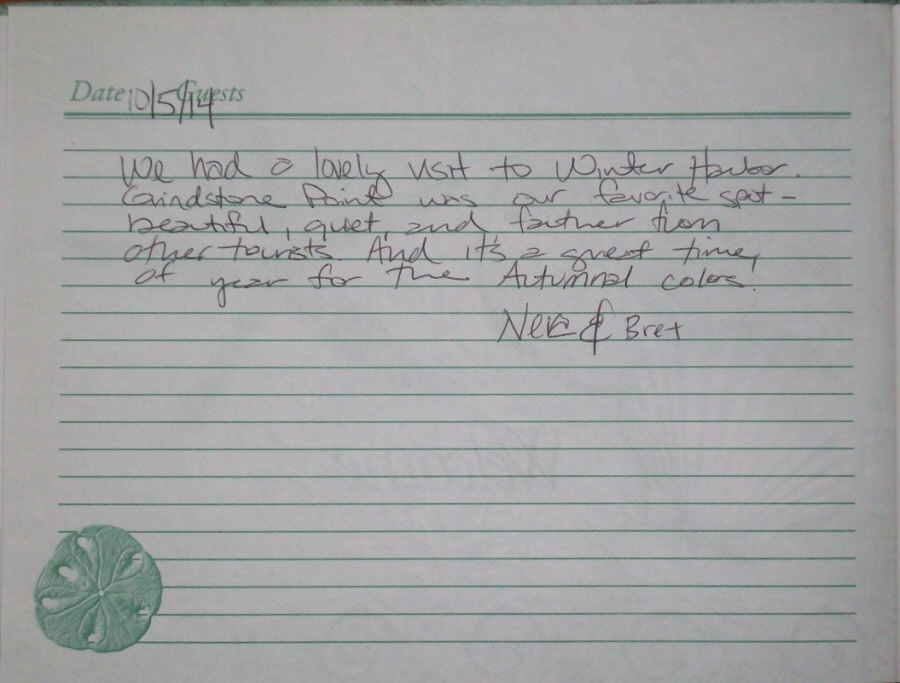 Date Guests
10/5/14
We had a lovely visit to Winter Harbor.
Grindstone Point was our favorite spot -
beautiful, quiet, and farther from
other tourists. And it's a great time
of year for the Autumnal colors.
& Bret
Welcome